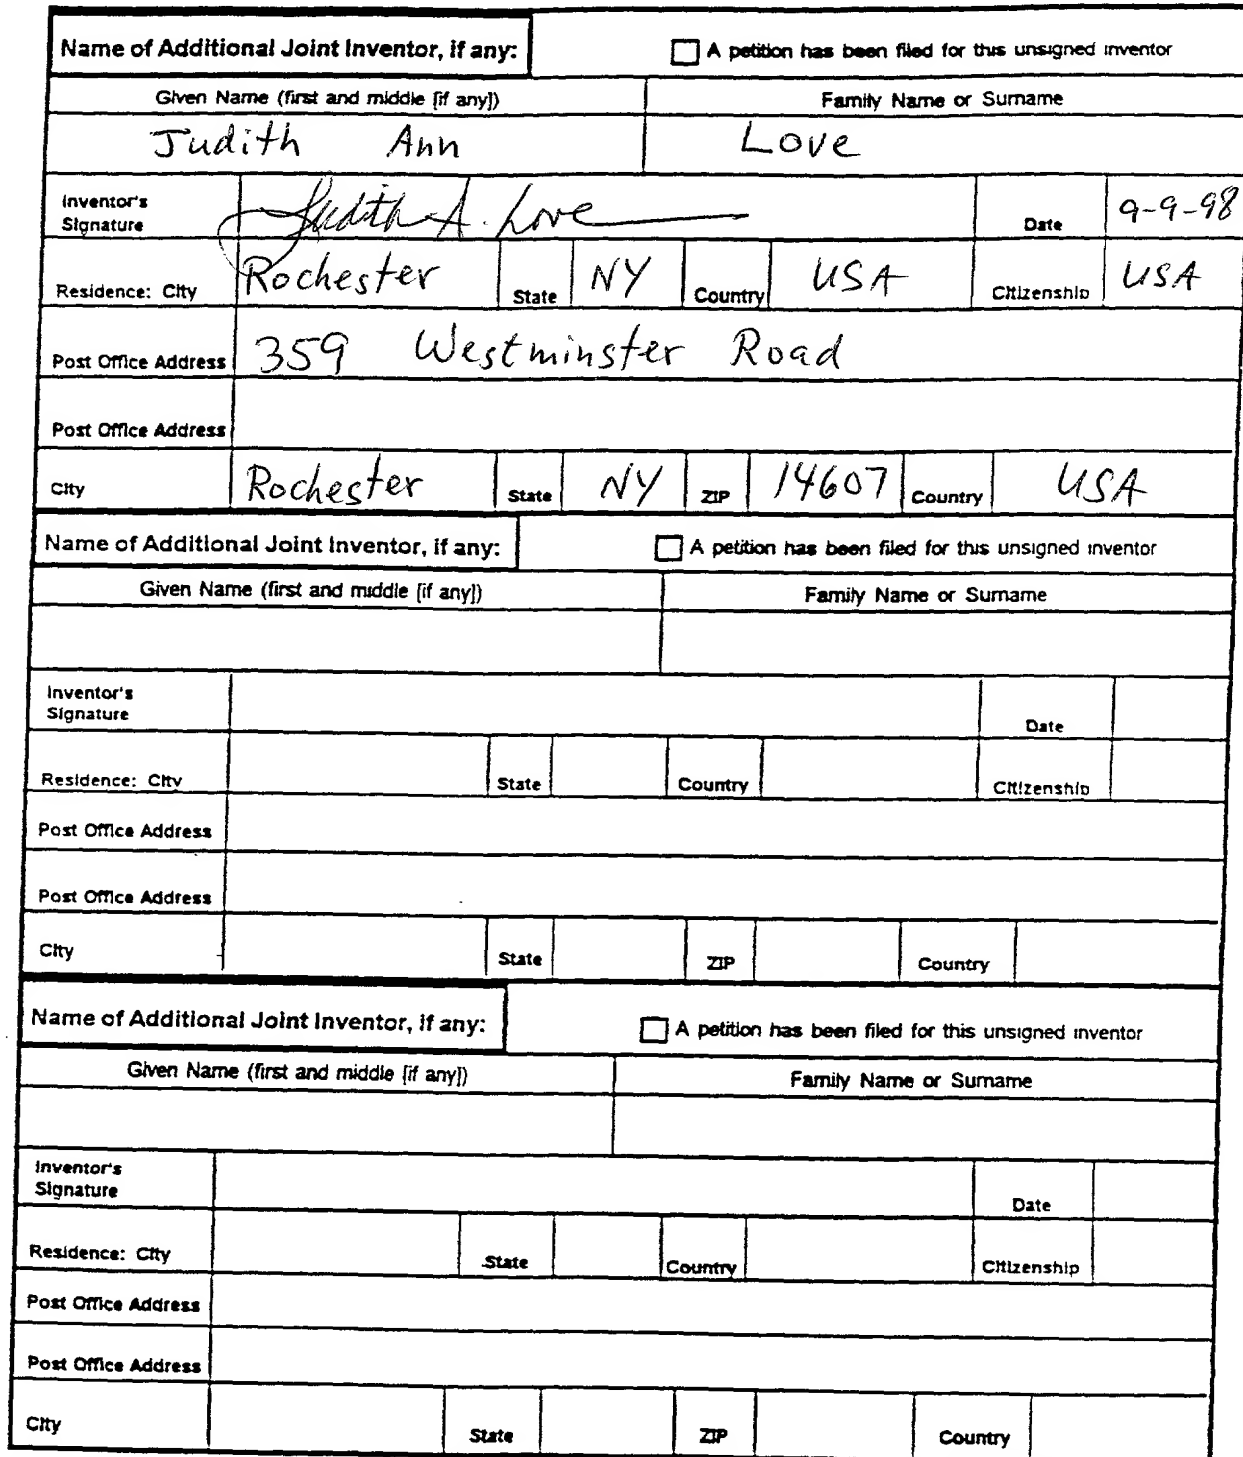 Name of Additional Joint Inventor, if any: A petition has been filed for this unsigned inventor
Given Name (first and middle [if any]) Family Name or Surname
Judith Ann Love
Inventor's Signature Judith A. Love Date 9-9-98
Residence: City Rochester State NY Country USA Citizenship USA
Post Office Address 359 Westminster Road
Post Office Address
City Rochester State NY ZIP 14607 Country USA
Name of Additional Joint Inventor, if any: A petition has been filed for this unsigned inventor
Given Name (first and middle [if any]) Family Name or Surname
Inventor's Signature Date
Residence: City State Country Citizenship
Post Office Address
Post Office Address
City State ZIP Country
Name of Additional Joint Inventor, if any: A petition has been filed for this unsigned inventor
Given Name (first and middle [if any]) Family Name or Surname
Inventor's Signature Date
Residence: City State Country Citizenship
Post Office Address
Post Office Address
City State ZIP Country